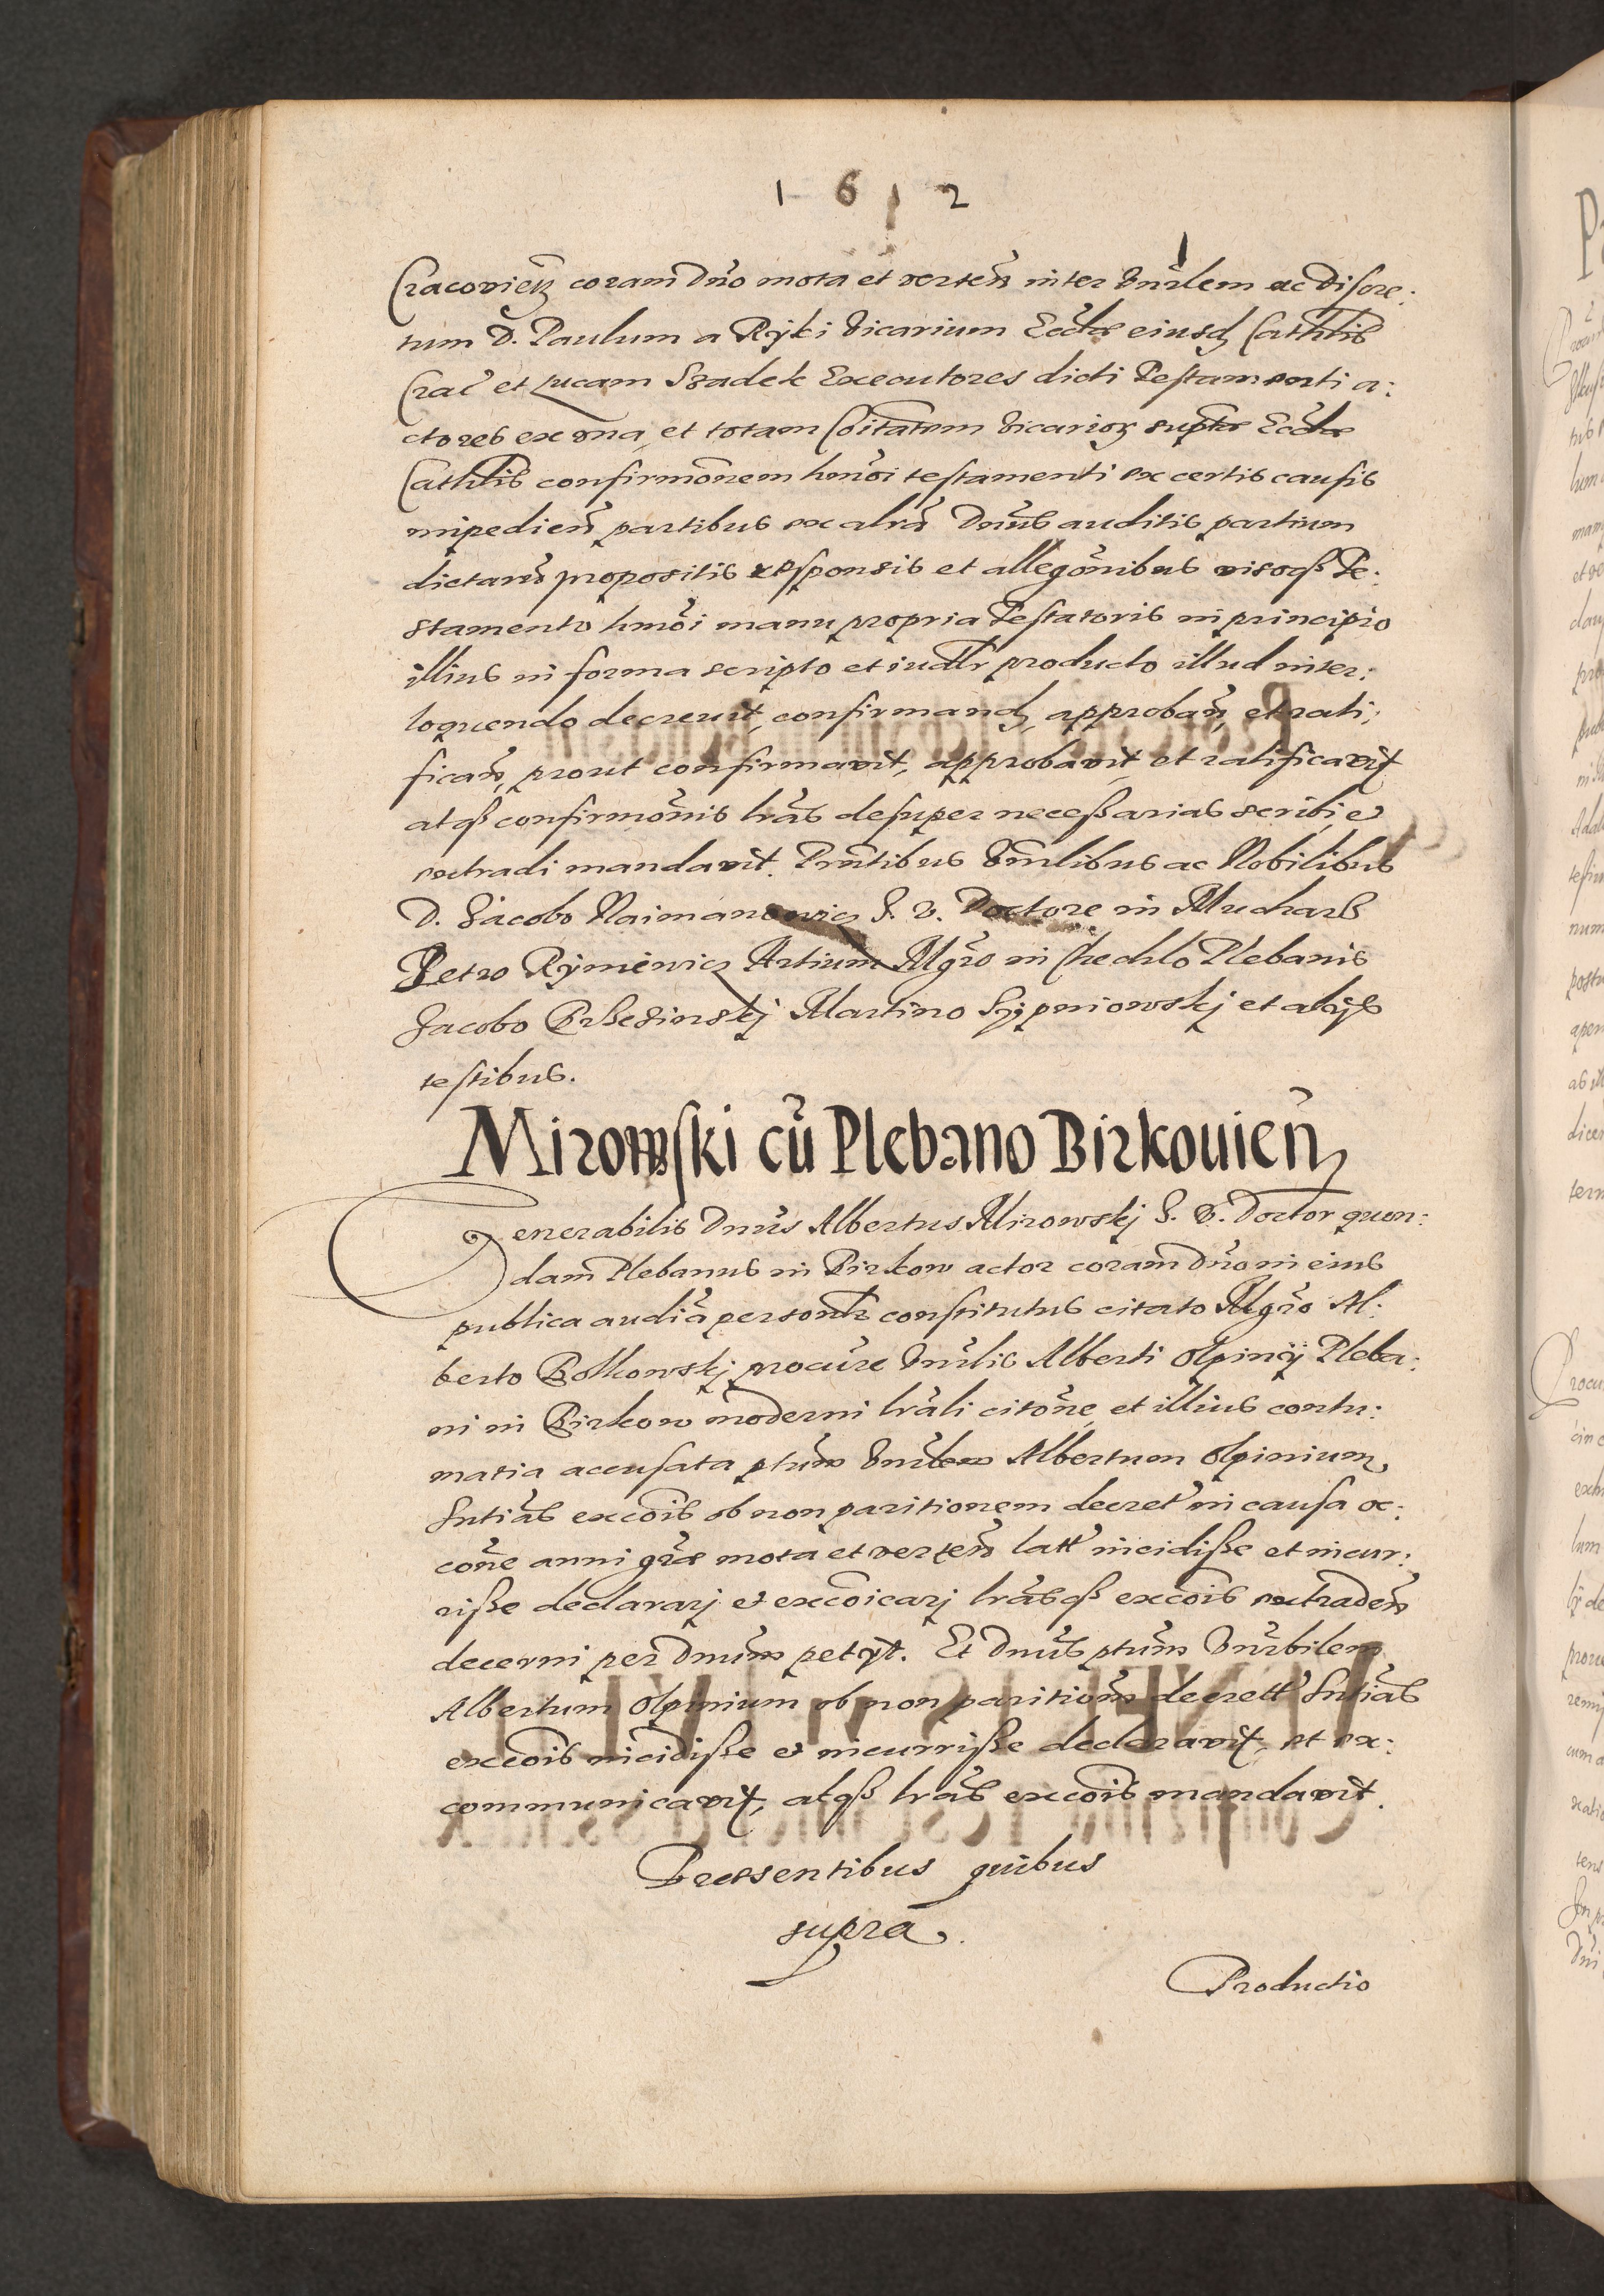 1 6 1 2
Cracovien̄ coram Dn̄o mota et verten̄ inter Vn̄rlem ac Discre:
tum D. Paulum a Ryki Vicarium Eccl̄ae eiusd Cathl̄is
Crac̄ et Lucam Szadek Executores dicti Testamenti a:
ctores ex vna, et totam Cōitatem Vicarior suptae Eccl̄ae
Cathl̄is confirmōnem hmōi testamenti ex certis causis
impedien̄ partibus ex altrā Dn̄us auditis partium
dictarū propositis responsis et allegōnibus visoqʒ Te:
stamento hmōi manu propria Testatoris in principio
illius in forma scripto et iudl̄r producto illud inter:
loquendo decreuit, confirmand, approban̄, et rati:
fican̄, prout confirmavit, approbavit, et ratificavit
atqʒ confirmōnis lrās desuper necessarias scribi et
extradi mandavit. Prn̄tibus Vn̄rlibus ac Nobilibus
D. Jacobo Naimanowicz J. V. Doctore in Mucharz
Petro Rymienicz Artium Mgr̄o in Chechlo Plebanis
Jacobo Brzezinskj Martino Sypniowskj et alijs
testibus.
Mirowski cū Plebano Birkouien̄
Venerabilis Dn̄us Albertus Mirowskj J. V. Doctor quon:
dam Plebanus in Birkow actor coram Dn̄o in eius
publica audiā personl̄r constitutus citato Mgr̄o Al:
berto Bolkowskj procūre Vn̄rlis Alberti Olpinij Pleba:
ni in Birkow moderni lrāli citōne, et illius contu:
matia accusata ptum Vn̄rlem Albertum Olpinium
Sntiās excōis ob non paritionem decret in causa oc:
cōne anni grāe mota et verten̄ latt incidisse et incur:
risse declararj et excōicarj lrāsqʒ excōis extraden̄
decerni per Dn̄um petyt. Et Dn̄us ptum Vn̄rbilem
Albertum Olpinium ob non paritionē decrett Sntiās
excōis incidisse et incurrisse declaravit, et ex:
communicavit, atqʒ lrās excōis mandavit.
Praesentibus quibus
supra.
Productio